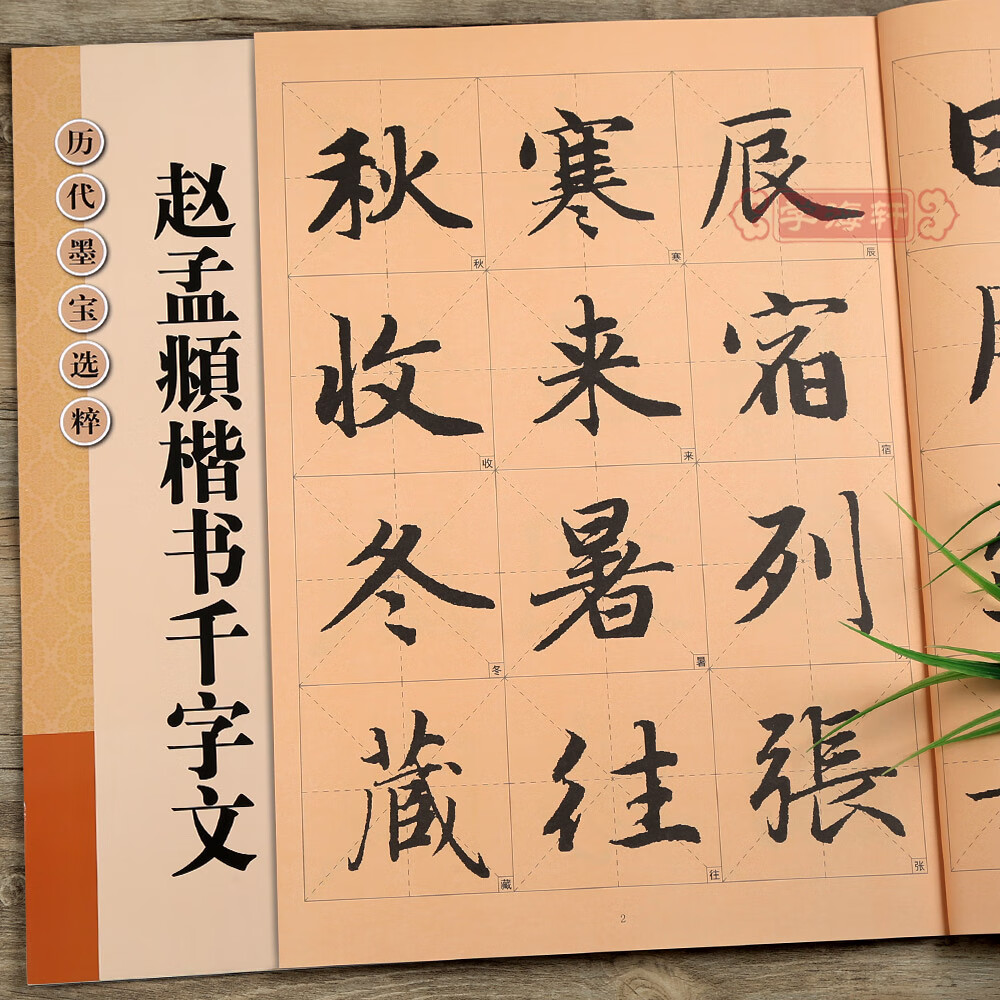 历代墨宝选粹
赵孟頫楷书千字文
辰宿列張
寒来暑往
秋收冬藏
辰
宿
张
寒
来
暑
往
秋
收
冬
藏
字海轩
2